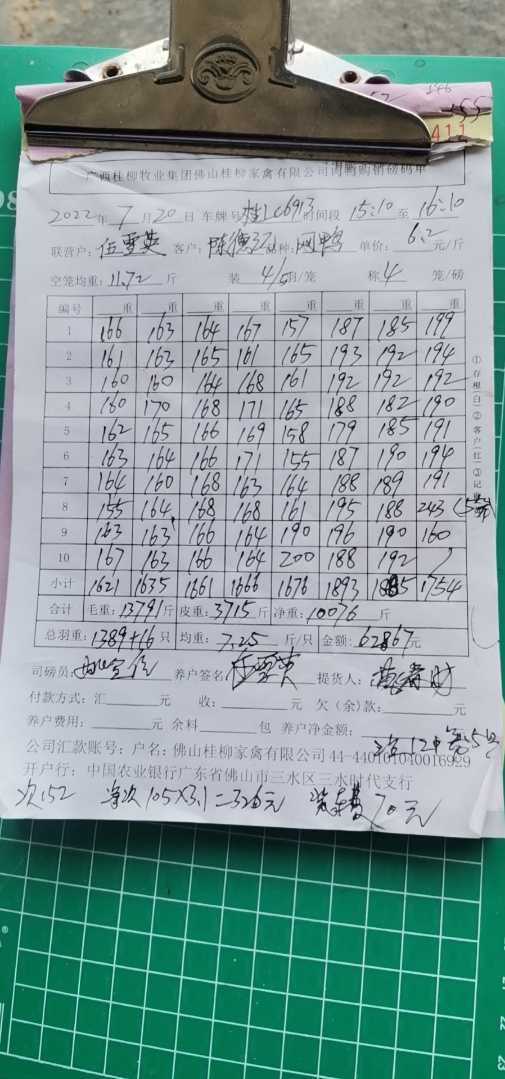 411
广西桂柳牧业集团佛山桂柳家禽有限公司肉鸭购销磅码单
2022年7月20日 车牌号 桂LC6913 时间段 15:10 至 16:10
联营户: 伍雪英 客户: 陈德江 品种: 网鸭 单价: 6.2元/斤
空笼均重: 11.72 斤 装 4/5只/笼 称 4 笼/磅
编号 重 重 重 重 重 重 重 重
1 166 163 164 167 157 187 185 199
2 161 163 165 161 165 193 192 194
3 160 160 164 168 161 192 192 192
4 160 170 168 171 165 188 182 190
5 162 165 166 169 158 179 185 191
6 163 164 166 171 155 187 190 194
7 164 160 168 163 164 188 189 191
8 155 164 168 168 161 195 188 243 (5
9 163 163 166 164 190 196 190 160
10 167 163 166 164 200 188 192
小计 1621 1635 1661 1666 1676 1893 1885 1754
合计 毛重: 13791斤 皮重: 3715斤 净重: 10076 斤
总羽重: 1389+16只 均重: 7.25 斤/只 金额: 62867元
司磅员: 养户签名: 伍雪英 提货人:
付款方式: 汇 元 收: 元 欠(余)款: 元
养户费用: 元 余料 包 养户净金额:
公司汇款账号: 户名: 佛山桂柳家禽有限公司 44-440101040016929
开户行: 中国农业银行广东省佛山市三水区三水时代支行
次152 次105×3.1=326元 装车费70元
①存根(白)②客户(红)③记